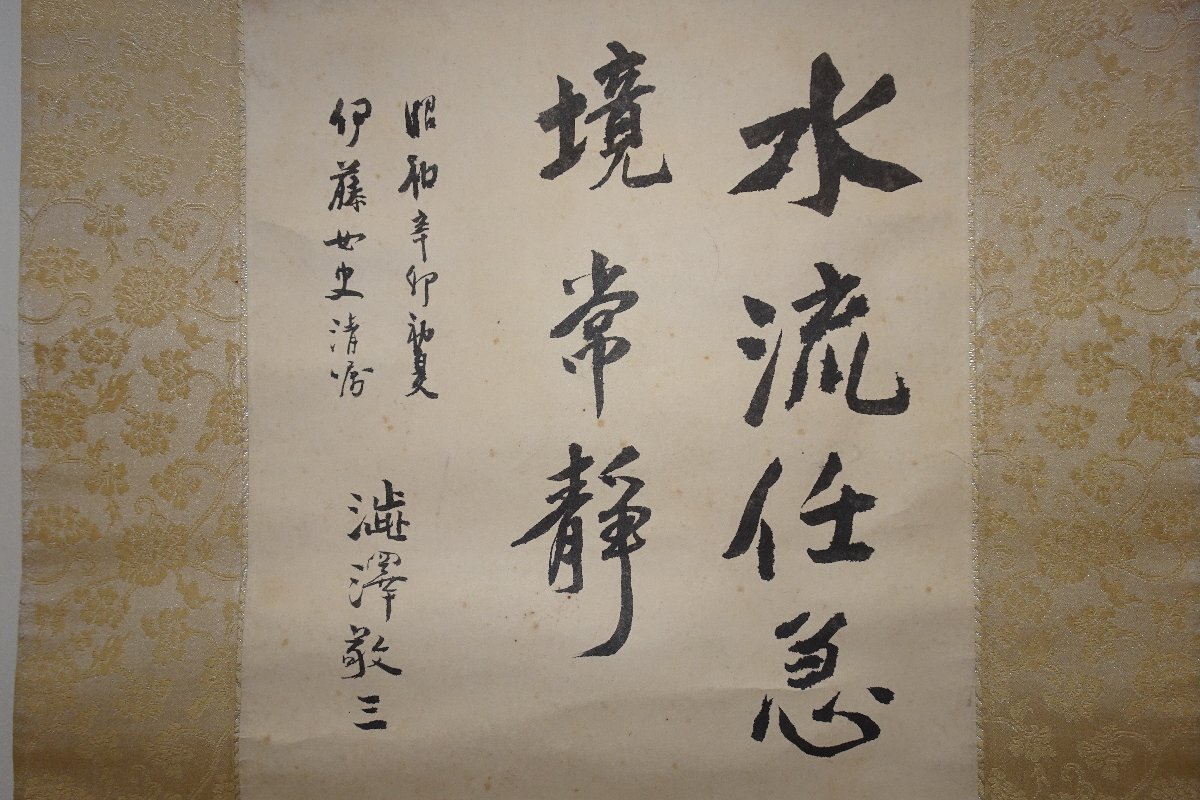 水流任急
境常靜
昭和辛卯初夏
伊藤女史清嘱
澁澤敬三